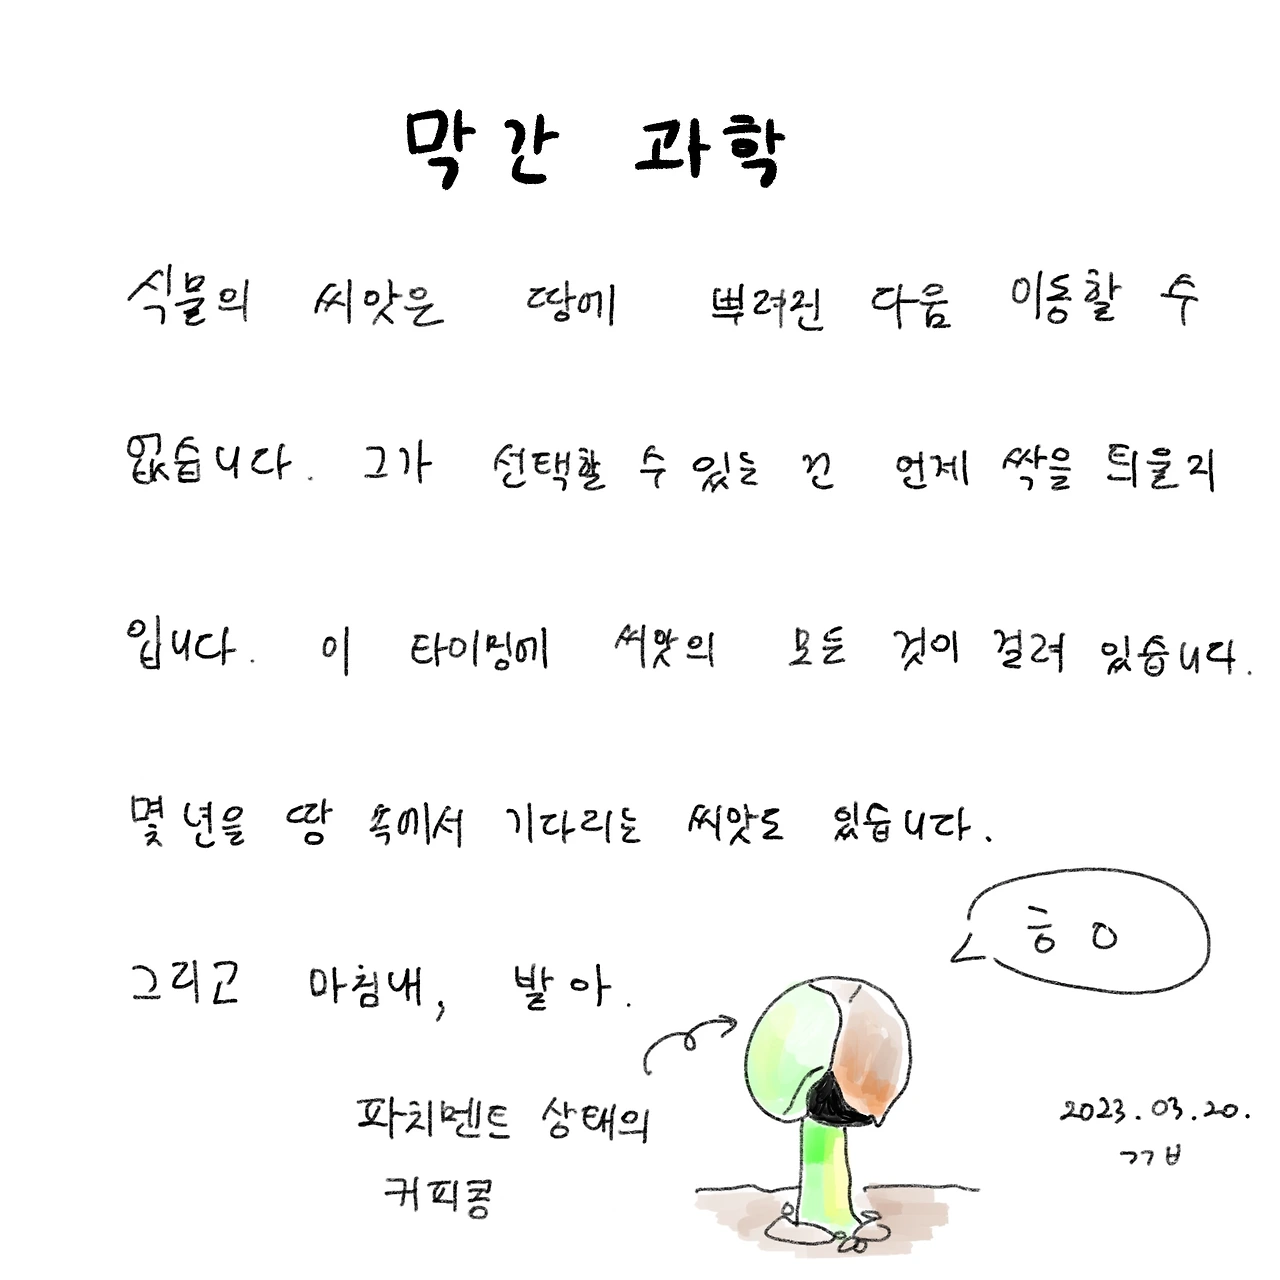 막간 과학
식물의 씨앗은 땅에 뿌려진 다음 이동할 수
없습니다. 그가 선택할 수 있는 건 언제 싹을 틔울지
입니다. 이 타이밍에 씨앗의 모든 것이 걸려 있습니다.
몇 년을 땅 속에서 기다리는 씨앗도 있습니다.
그리고 마침내, 발아.
흥ㅇ
파치멘트 상태의
커피콩
2023.03.20.
ㄱㄱㅂ